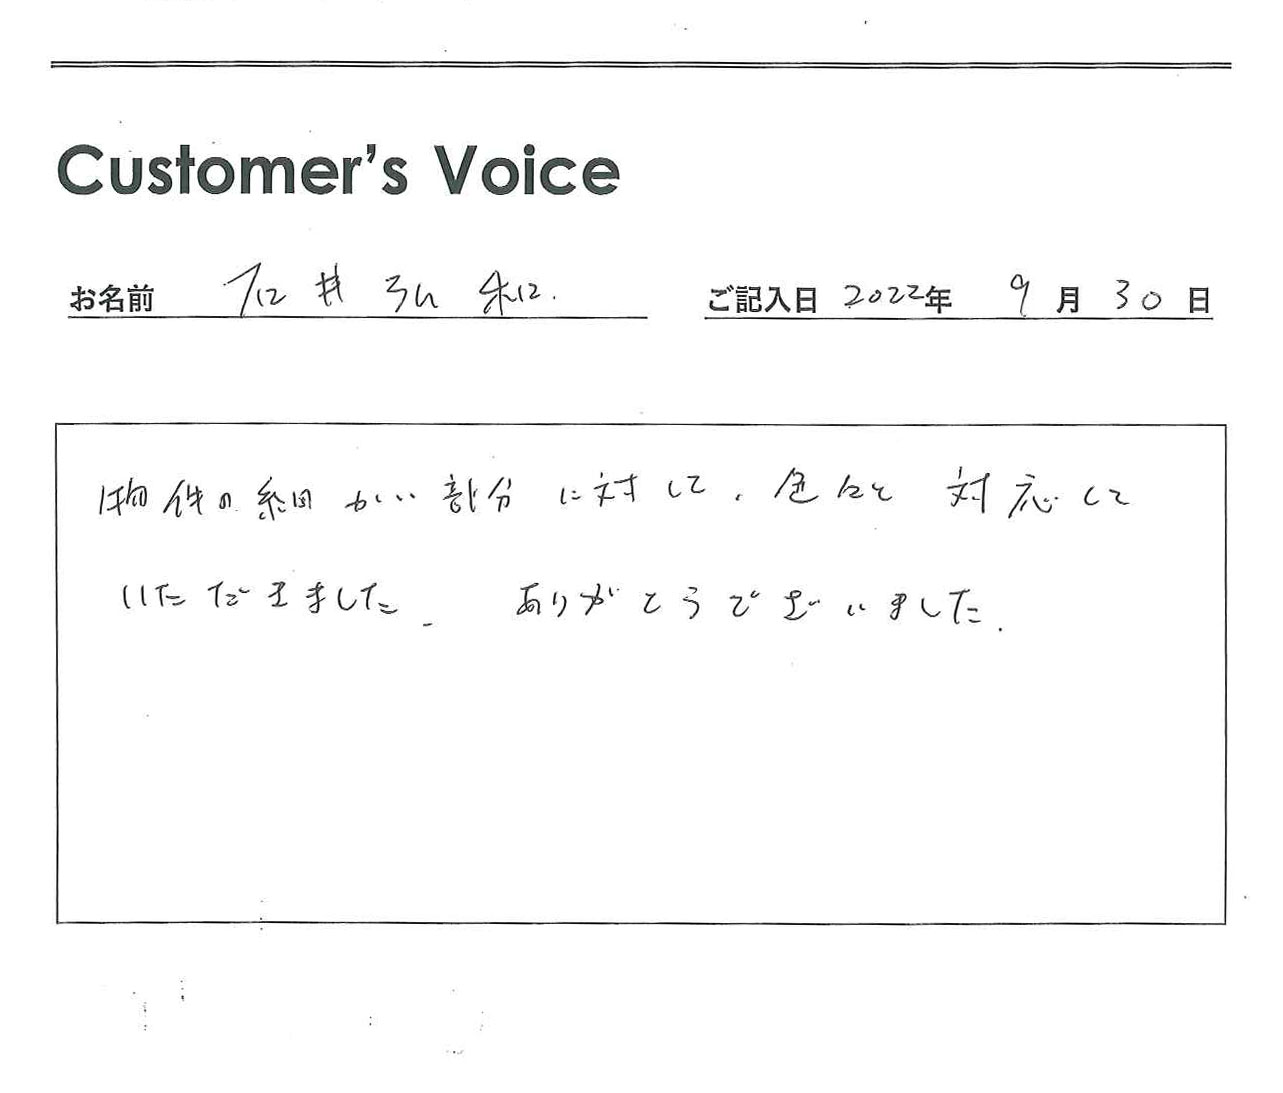 Customer's Voice
お名前 石井 弘和.
ご記入日 2022年 9月 30日
物件の細かい部分に対して、色々と 対応して
いただきました. ありがとうございました.